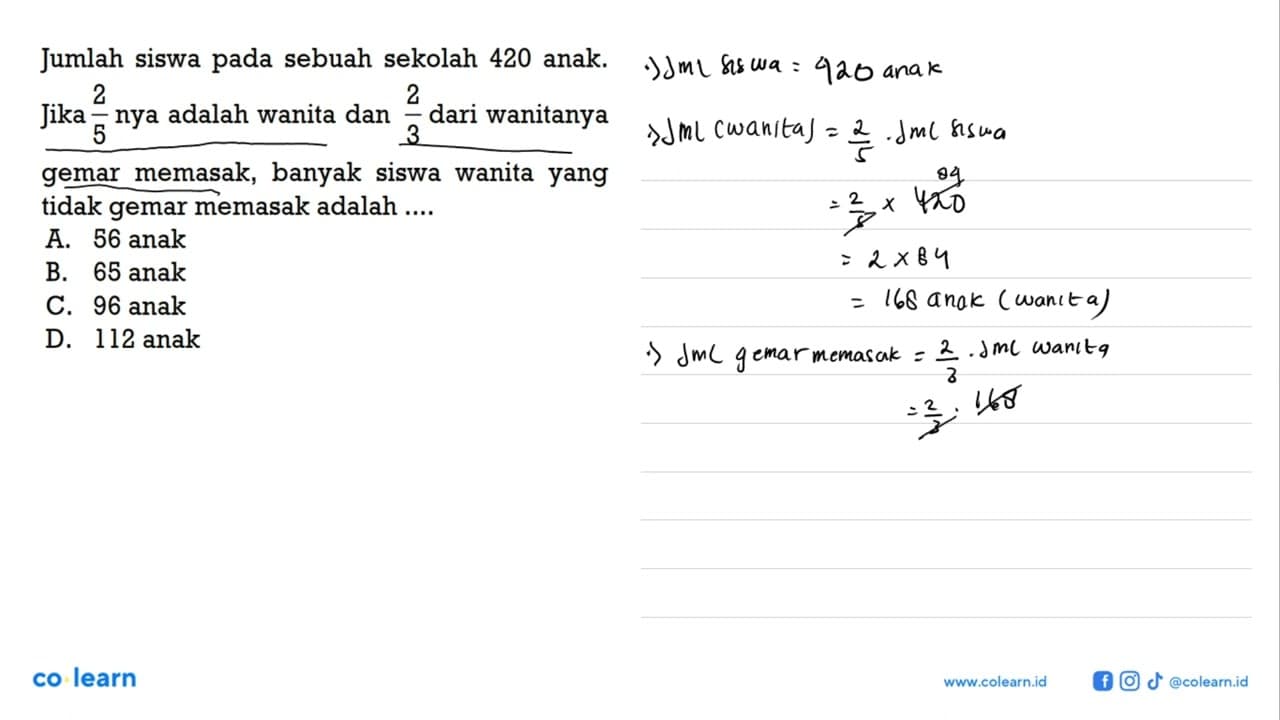 Jumlah siswa pada sebuah sekolah 420 anak.
Jika 2/5 nya adalah wanita dan 2/3 dari wanitanya
gemar memasak, banyak siswa wanita yang
tidak gemar memasak adalah ....
A. 56 anak
B. 65 anak
C. 96 anak
D. 112 anak
·) Jml siswa = 420 anak
·) Jml (wanita) = 2/5 . Jml siswa
84
= 2/5 x 420
= 2 x 84
= 168 anak (wanita)
·) Jml gemar memasak = 2/3 . Jml wanita
= 2/3 . 168
co learn
www.colearn.id
@colearn.id